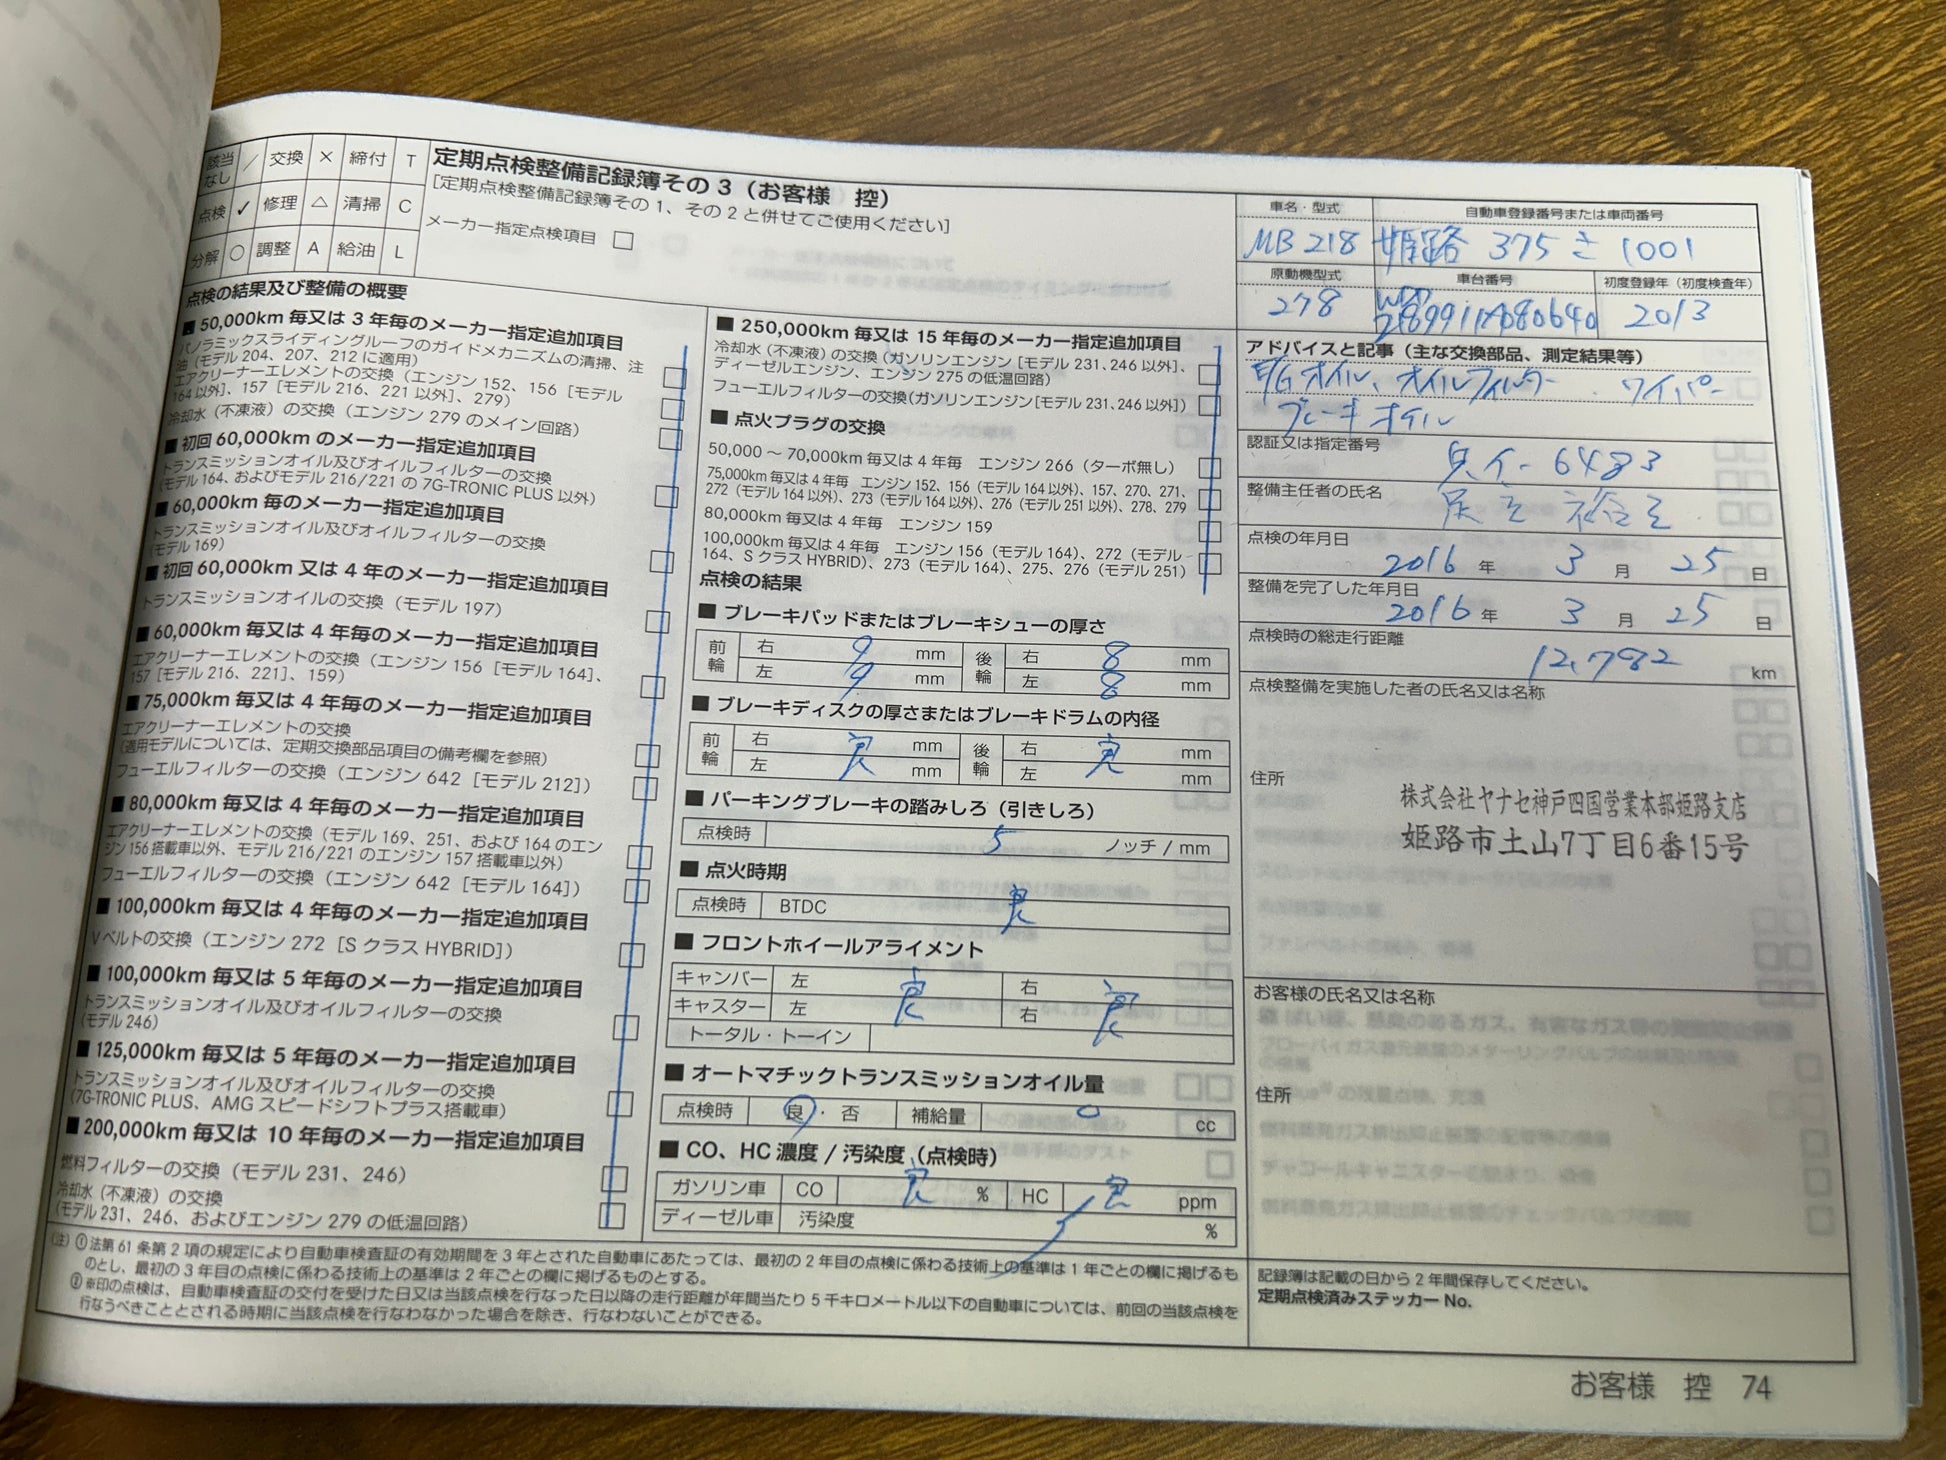 該当なし ／ 交換 × 締付 T
点検 ✓ 修理 △ 清掃 C
分解 ○ 調整 A 給油 L
定期点検整備記録簿その3（お客様　控）
［定期点検整備記録簿その1、その2と併せてご使用ください］
メーカー指定点検項目 □
点検の結果及び整備の概要
■ 50,000km 毎又は 3 年毎のメーカー指定追加項目
パノラミックスライディングルーフのガイドメカニズムの清掃、注
油（モデル 204、207、212 に適用）
エアクリーナーエレメントの交換（エンジン 152、156［モデル
164 以外］、157［モデル 216、221 以外］、279）
冷却水（不凍液）の交換（エンジン 279 のメイン回路）
■ 初回 60,000km のメーカー指定追加項目
トランスミッションオイル及びオイルフィルターの交換
（モデル 164、およびモデル 216/221 の 7G-TRONIC PLUS 以外）
■ 60,000km 毎のメーカー指定追加項目
トランスミッションオイル及びオイルフィルターの交換
（モデル 169）
■ 初回 60,000km 又は 4 年毎のメーカー指定追加項目
トランスミッションオイルの交換（モデル 197）
■ 60,000km 毎又は 4 年毎のメーカー指定追加項目
エアクリーナーエレメントの交換（エンジン 156［モデル 164］、
157［モデル 216、221］、159）
■ 75,000km 毎又は 4 年毎のメーカー指定追加項目
エアクリーナーエレメントの交換
（適用モデルについては、定期交換部品項目の備考欄を参照）
フューエルフィルターの交換（エンジン 642［モデル 212］）
■ 80,000km 毎又は 4 年毎のメーカー指定追加項目
エアクリーナーエレメントの交換（モデル 169、251、および 164 のエン
ジン 156 搭載車以外、モデル 216/221 のエンジン 157 搭載車以外）
フューエルフィルターの交換（エンジン 642［モデル 164］）
■ 100,000km 毎又は 4 年毎のメーカー指定追加項目
Vベルトの交換（エンジン 272［S クラス HYBRID］）
■ 100,000km 毎又は 5 年毎のメーカー指定追加項目
トランスミッションオイル及びオイルフィルターの交換
（モデル 246）
■ 125,000km 毎又は 5 年毎のメーカー指定追加項目
トランスミッションオイル及びオイルフィルターの交換
（7G-TRONIC PLUS、AMG スピードシフトプラス搭載車）
■ 200,000km 毎又は 10 年毎のメーカー指定追加項目
燃料フィルターの交換（モデル 231、246）
冷却水（不凍液）の交換
（モデル 231、246、およびエンジン 279 の低温回路）
■ 250,000km 毎又は 15 年毎のメーカー指定追加項目
冷却水（不凍液）の交換（ガソリンエンジン［モデル 231、246 以外］、
ディーゼルエンジン、エンジン 275 の低温回路）
フューエルフィルターの交換（ガソリンエンジン［モデル 231、246 以外］）
■ 点火プラグの交換
50,000 〜 70,000km 毎又は 4 年毎　エンジン 266（ターボ無し）
75,000km 毎又は 4 年毎　エンジン 152、156（モデル 164 以外）、157、270、271、
272（モデル 164 以外）、273（モデル 164 以外）、276（モデル 251 以外）、278、279
80,000km 毎又は 4 年毎　エンジン 159
100,000km 毎又は 4 年毎　エンジン 156（モデル 164）、272（モデル
164、S クラス HYBRID）、273（モデル 164）、275、276（モデル 251）
点検の結果
■ ブレーキパッドまたはブレーキシューの厚さ
前輪 右 9 mm 後輪 右 8 mm
左 9 mm 左 8 mm
■ ブレーキディスクの厚さまたはブレーキドラムの内径
前輪 右 良 mm 後輪 右 良 mm
左 mm 左 mm
■ パーキングブレーキの踏みしろ（引きしろ）
点検時 5 ノッチ / mm
■ 点火時期
点検時 BTDC 良
■ フロントホイールアライメント
キャンバー 左 良 右 良
キャスター 左 右
トータル・トーイン
■ オートマチックトランスミッションオイル量
点検時 良・否 補給量 0 cc
■ CO、HC 濃度 / 汚染度（点検時）
ガソリン車 CO 良 % HC 良 ppm
ディーゼル車 汚染度 %
（注）① 法第 61 条第 2 項の規定により自動車検査証の有効期間を 3 年とされた自動車にあたっては、最初の 2 年目の点検に係わる技術上の基準は 1 年ごとの欄に掲げるも
のとし、最初の 3 年目の点検に係わる技術上の基準は 2 年ごとの欄に掲げるものとする。
② ※印の点検は、自動車検査証の交付を受けた日又は当該点検を行なった日以降の走行距離が年間当たり 5 千キロメートル以下の自動車については、前回の当該点検を
行なうべきこととされる時期に当該点検を行なわなかった場合を除き、行なわないことができる。
車名・型式 自動車登録番号または車両番号
MB 218 姫路 375 さ 1001
原動機型式 車台番号 初度登録年（初度検査年）
278 WDD 2189911A080640 2013
アドバイスと記事（主な交換部品、測定結果等）
E/G オイル、オイルフィルター ワイパー
ブレーキオイル
認証又は指定番号
兵イ-6483
整備主任者の氏名
点検の年月日
2016 年 3 月 25 日
整備を完了した年月日
2016 年 3 月 25 日
点検時の総走行距離
12,782 km
点検整備を実施した者の氏名又は名称
住所
株式会社ヤナセ神戸四国営業本部姫路支店
姫路市土山7丁目6番15号
お客様の氏名又は名称
住所
記録簿は記載の日から 2 年間保存してください。
定期点検済みステッカー No.
お客様　控　74